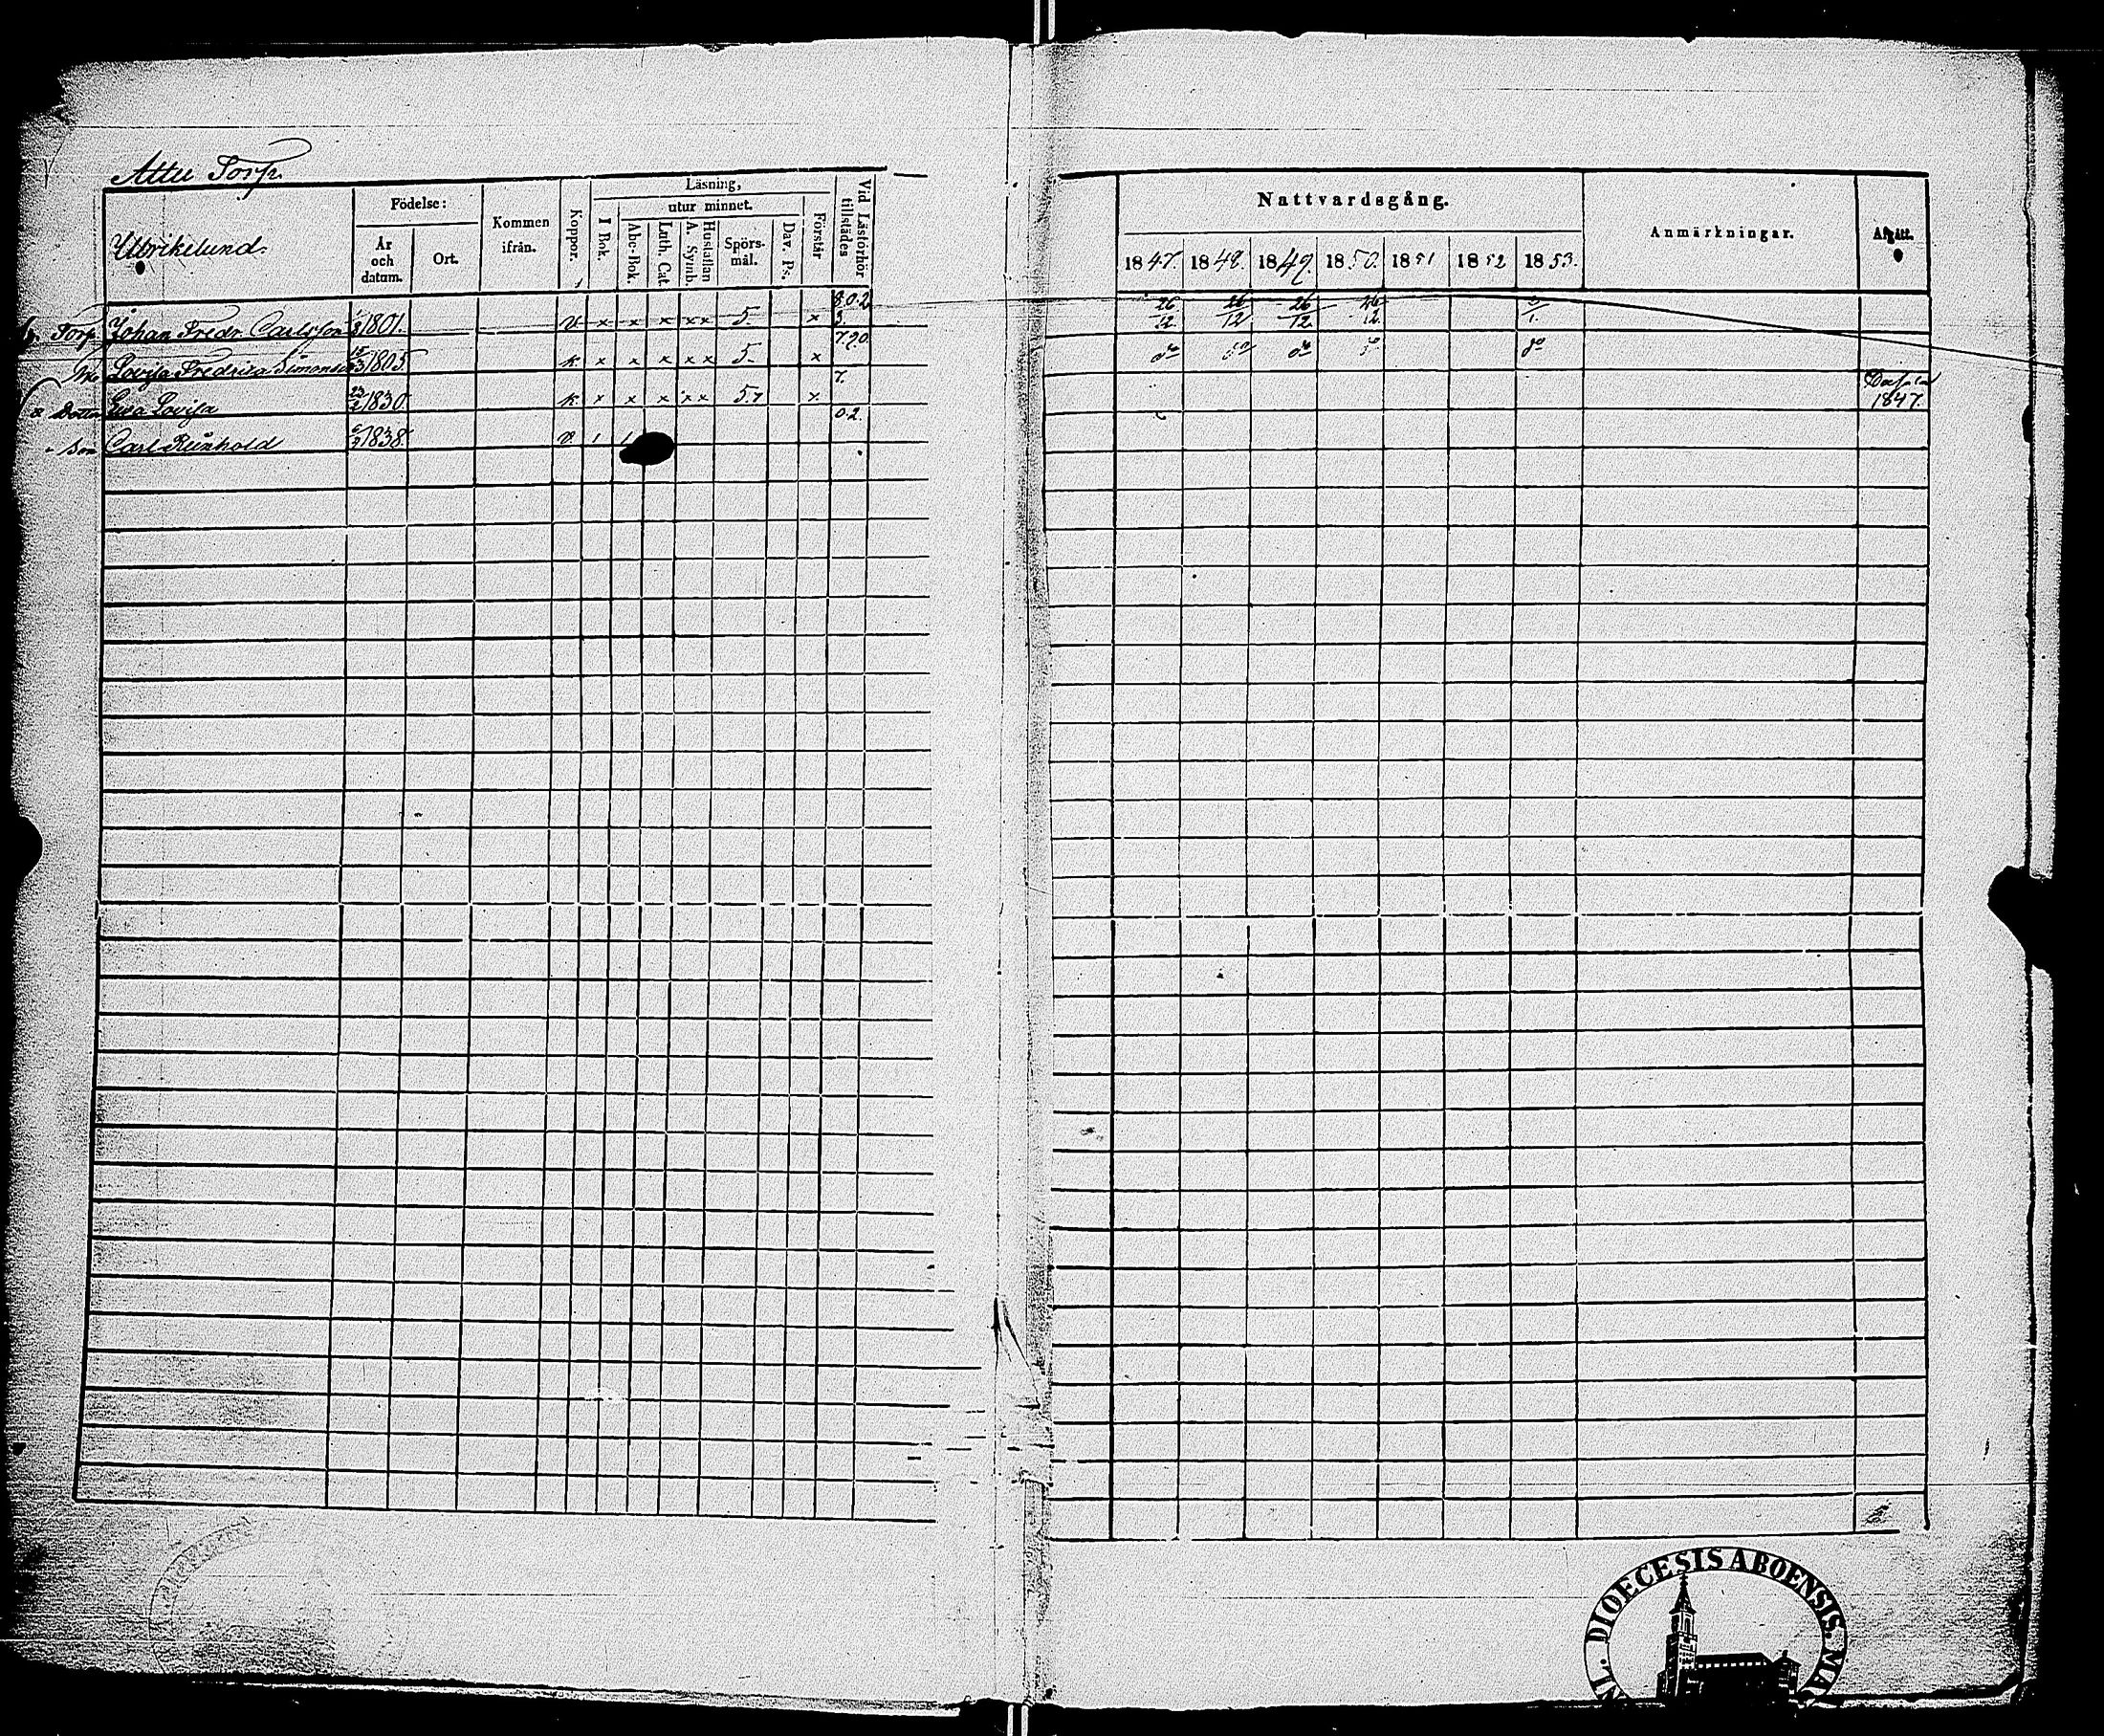 Attu Torp.
Ullrikelund.
Födelse:
År och datum.
Ort.
Kommen ifrån.
Koppor.
Läsning,
I Bok.
utur minnet.
Abc-Bok.
Luth. Cat.
Hustaflan A. Symb.
Spörs-mål.
Dav. Ps.
Förstår
Vid Läsförhör tillstädes
Nattvardsgång.
1847. 1848. 1849. 1850. 1851 1852 1853.
Anmärkningar.
Afgått.
Torp. Johan Fredr. Carlsson 1801. v x x x x x 5. x 8.0.2 3. 26/12 26/12 26/12 26/12
Lovisa Fredrica Simonsd 1805. k. x x x x x 5. x 7.9.0. do do do do do
Dotter Eva Lovisa 23/2 1830. k. x x x x x 5. x 7. 1847.
Son Carl Reinhold 1838. v. 0.2.
DIOECESIS ABOENSIS.